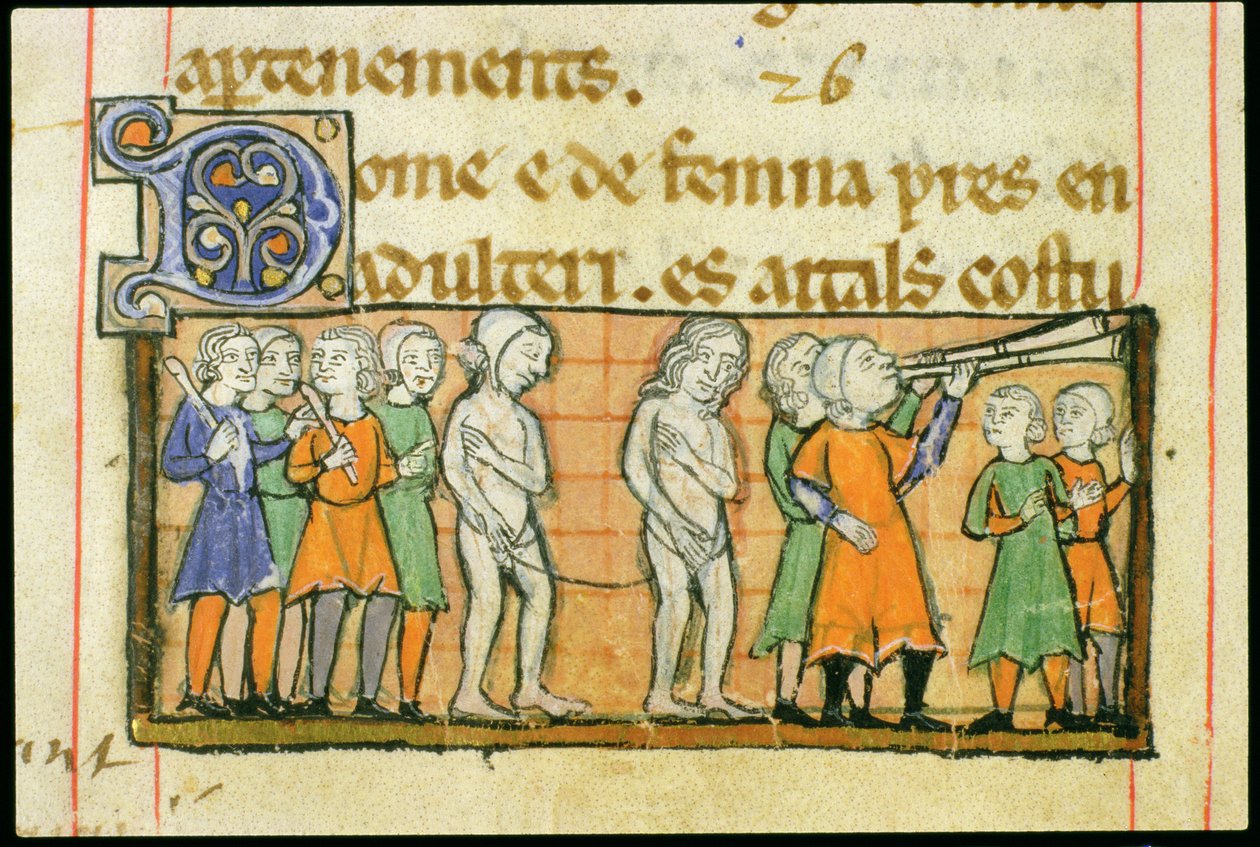 apertenements.
26
Dome e de femna pres en
adulteri. es aitals costu